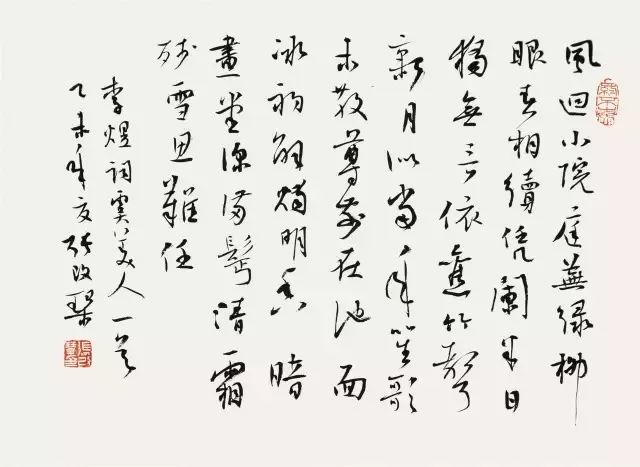 風迴小院庭蕪綠柳
眼春相續凭闌半日
獨無言依舊竹聲
新月似當年笙歌
未散尊前在池面
冰初解燭明香暗
畫堂深滿鬢清霜
残雪思難任
李煜詞虞美人一首
乙未年夏張改琴